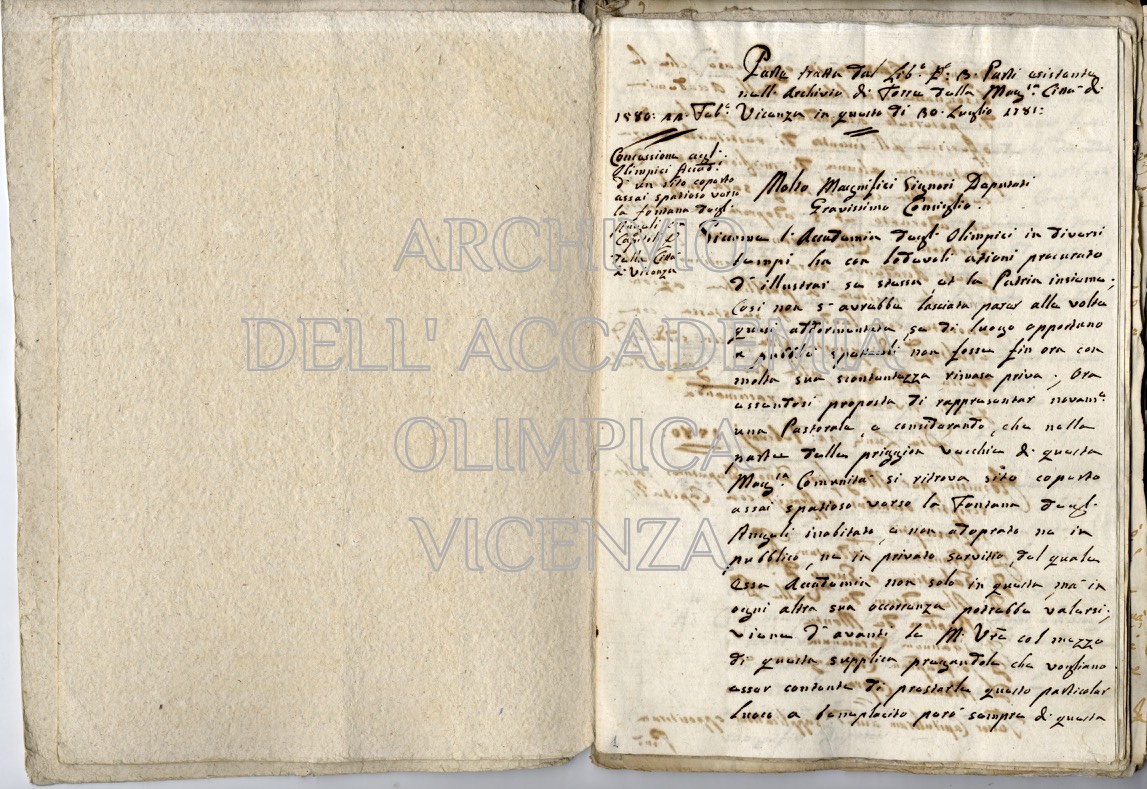 Parte tratta dal Lib.º P.º B. Parti esistente
nell' Archivio di Torre della Mag.ca Città di
1580: 22. Feb.º Vicenza in questo dì 30. Luglio 1781:
Concessione agli
Olimpici Accad.i
d' un sito coperto
assai spatioso verso
la fontana degl'
Angeli
Capitol
della Città
di Vicenza
Molto Magnifici Signori Deputati
Gravissimo Consiglio.
Siccome l' Accademia degl' Olimpici in diversi
tempi ha con lodevoli azioni procurato
d' illustrar se stessa, et la Patria insieme;
Così non s' avrebbe lasciata parer alle volte
quasi addormentata, se di luogo opportuno
a pubblici spettacoli non fosse fin ora con
molta sua scontentezza rimasa priva; Ora
essendosi proposta di rappresentar novam.e
una Pastorale, e considerando, che nella
parte delle priggion vecchie di questa
Mag.ca Comunità si ritrova sito coperto
assai spatioso verso la Fontana degl'
Angeli innabitato, e non adoprato ne in
pubblico, ne in privato servitio, del quale
Essa Accademia non solo in questa, mà in
ogni altra sua occorrenza potrebbe valersi;
viene d' avanti le M. Vre col mezzo
di questa supplica pregandole che vogliano
esser contente di prestarle questo particolar
Luoco a beneplacito però sempre di questa
ARCHIVIO
DELL' ACCADEMIA
OLIMPICA
VICENZA